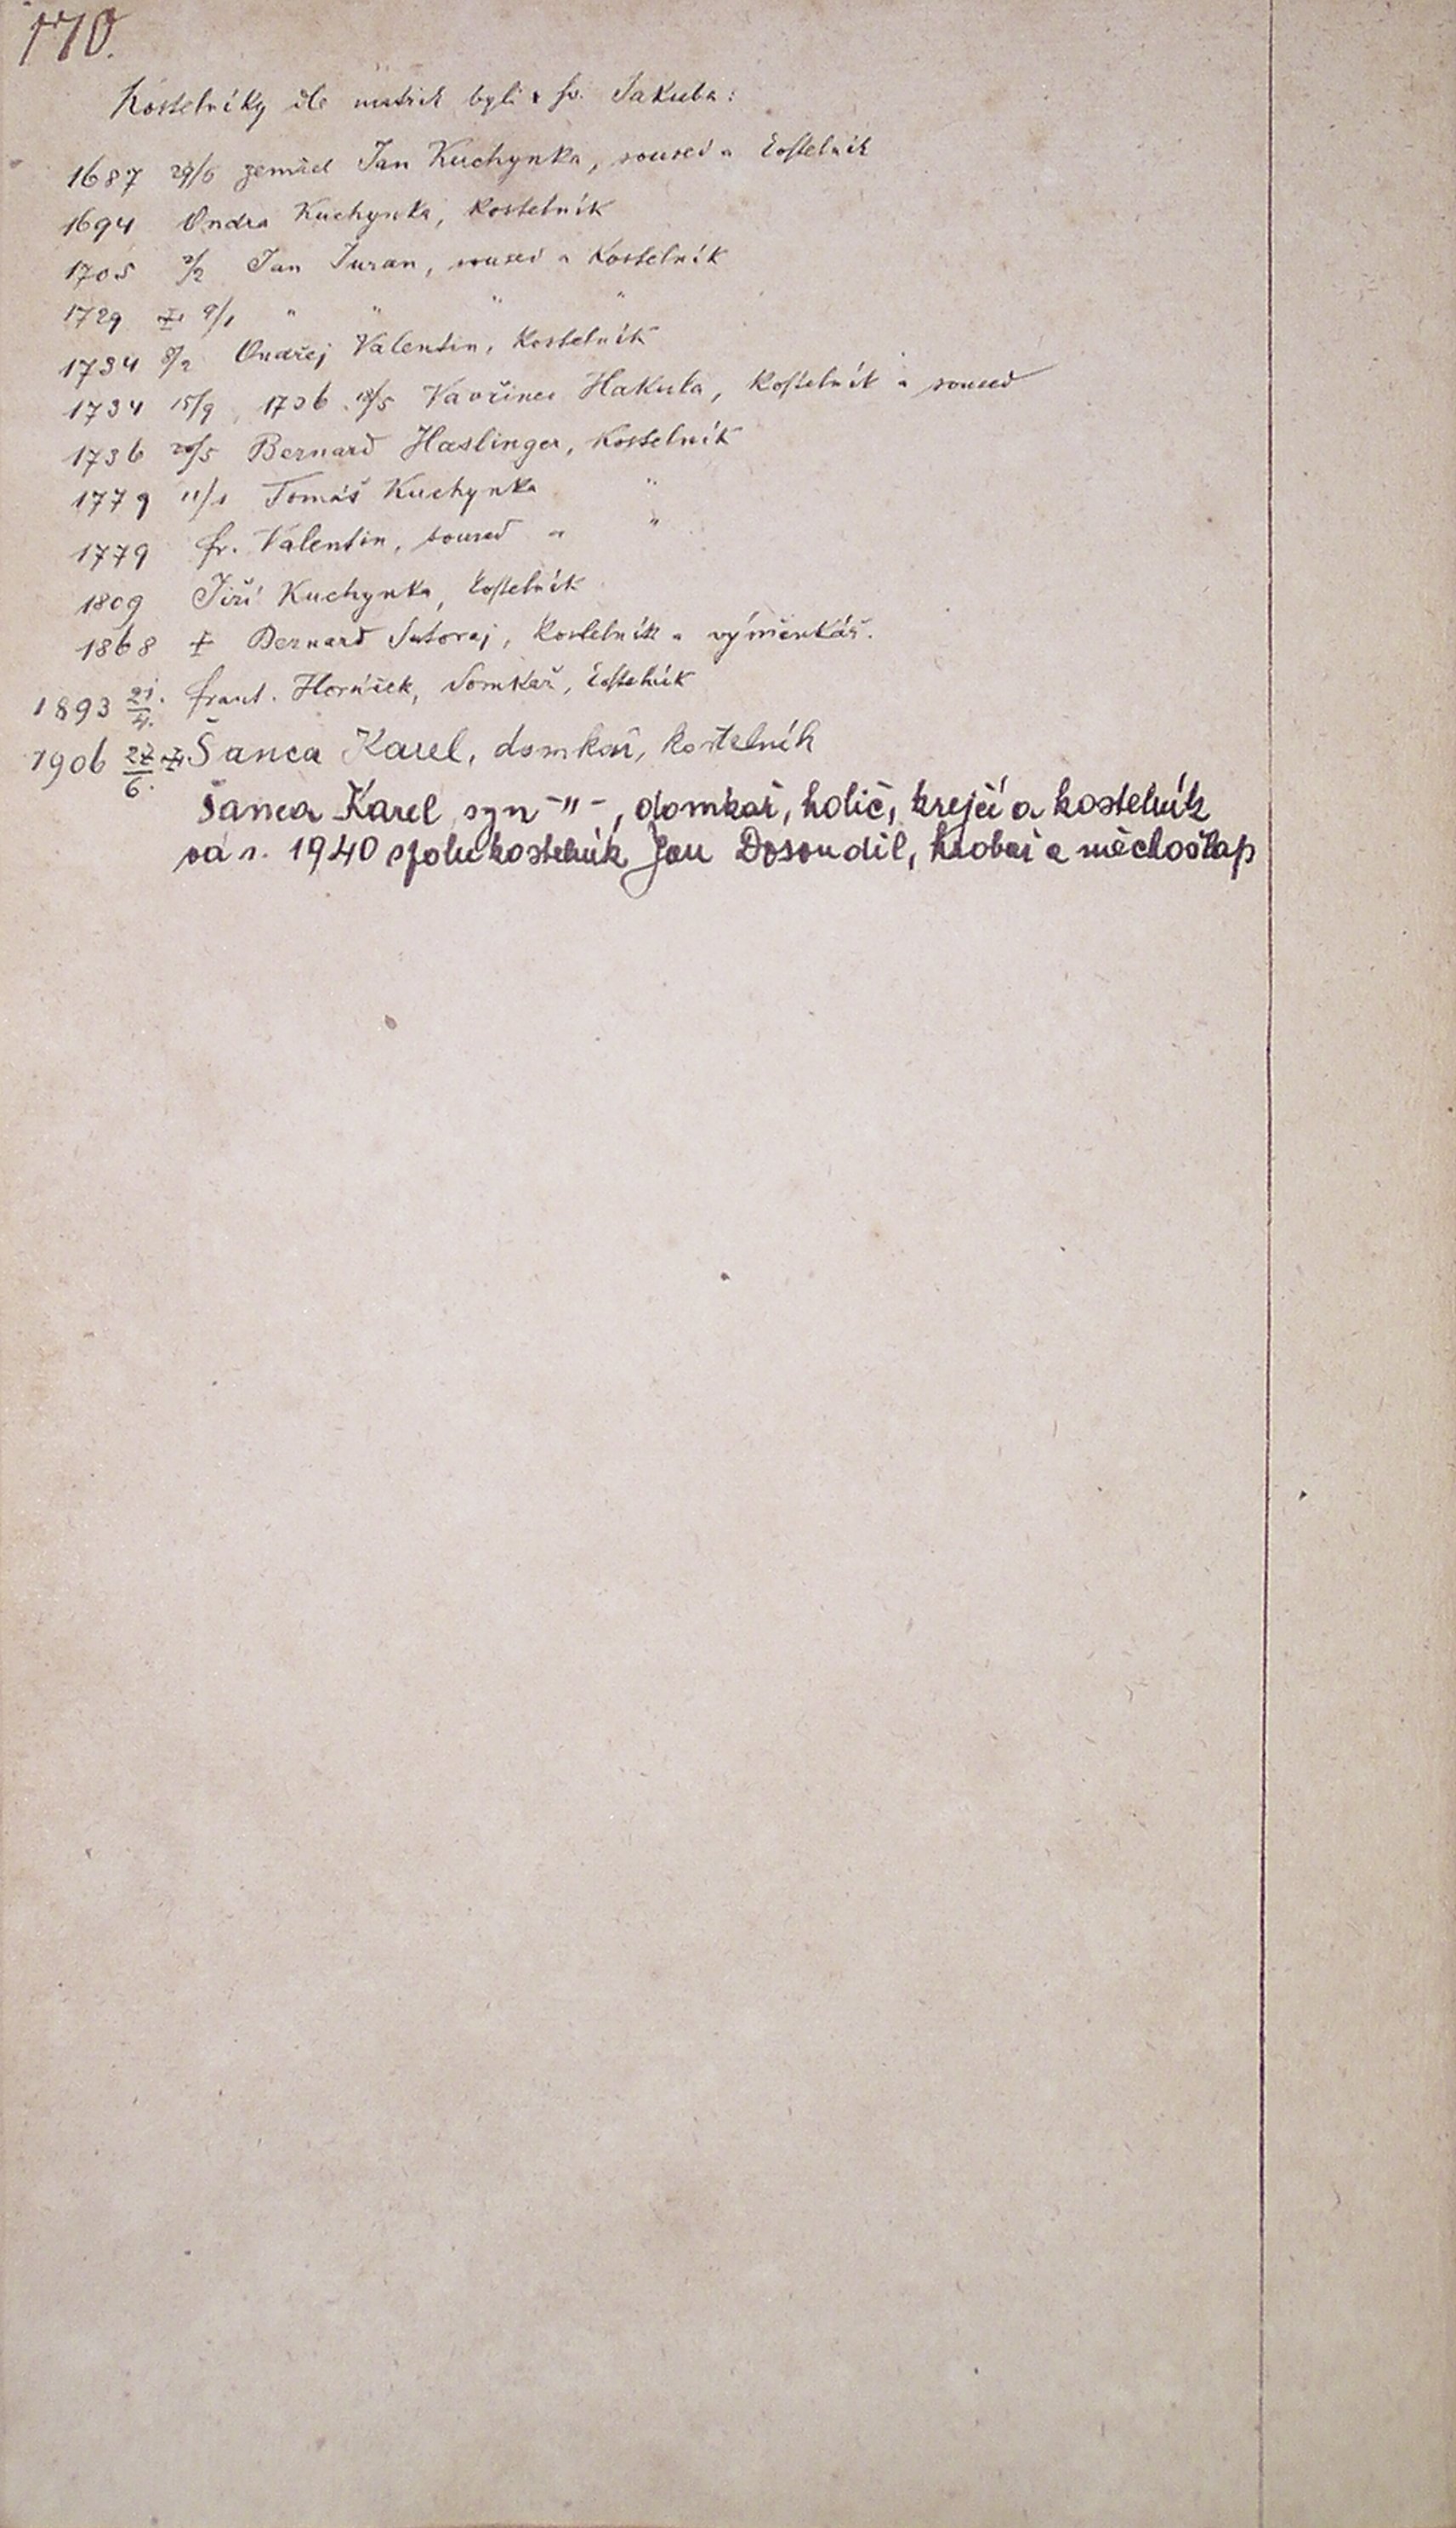 170.
Kostelníky dle matrik byli u sv. Jakuba:
1687 29/6 zemřel Jan Kuchynka, soused a kostelník
1694 Ondra Kuchynka, kostelník
1705 2/2 Jan Juran, soused a kostelník
1729 9/1 " " " "
1734 8/2 Ondřej Valentin, kostelník
1734 15/9, 1736 18/5 Vavřinec Hakula, kostelník a soused
1736 20/5 Bernard Haslinger, kostelník
1779 11/1 Tomáš Kuchynka "
1779 fr. Valentin, soused a "
1809 Jiří Kuchynka, kostelník
1868 Bernard Sutoraj, kostelník a výměnkář.
1893 21./4. frant. Horáček, domkař, kostelník
1906 27/6. Šanca Karel, domkař, kostelník
Šanca Karel, syn -"-, domkař, holič, krejčí a kostelník
od r. 1940 spolukostelník Jan Dosoudil, hrobař a měchošlap